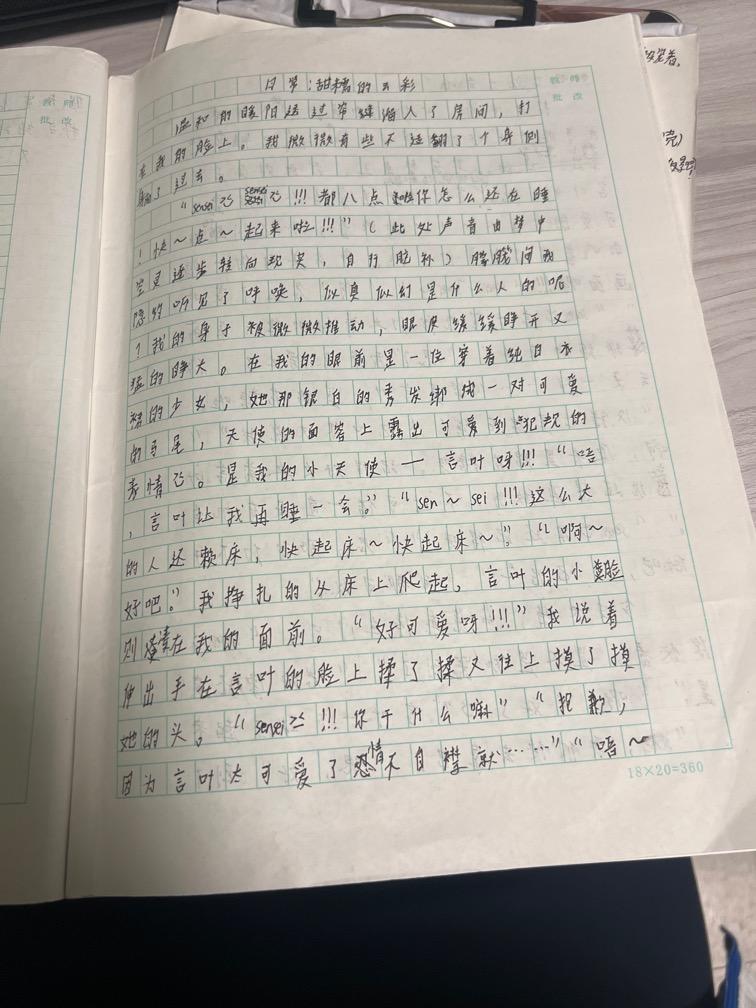 日常:甜糯的五彩
温和的暖阳透过帘缝溜入了房间,打
在我的脸上。我微微有些不适翻了个身侧
了过去。
"sensei≥≤ sensei≥≤!!!都八点啦你怎么还在睡
!快~点~起来啦!!!"(此处声音由梦中
空灵逐步转向现实,自行脑补)朦胧间我
隐约听见了呼唤,似真似幻是什么人的呢
?我的身子被微微推动,眼皮缓缓睁开又
猛的睁大。在我的眼前是一位穿着纯白衣
裙的少女,她那银白的秀发绑成一对可爱
的马尾,天使的面容上露出可爱到犯规的
表情≥≤。是我的小天使——言叶呀!!!"唔
,言叶让我再睡一会。""sen~sei!!!这么大
的人还赖床,快起床~快起床~""啊~
好吧。"我挣扎的从床上爬起,言叶的小脸
则凑在我的面前。"好可爱呀!!!"我说着
伸出手在言叶的脸上揉了揉又往上摸了摸
她的头。"sensei≥≤!!!你干什么嘛""抱歉,
因为言叶太可爱了情不自禁就……""唔~
18×20=360
教师
批改